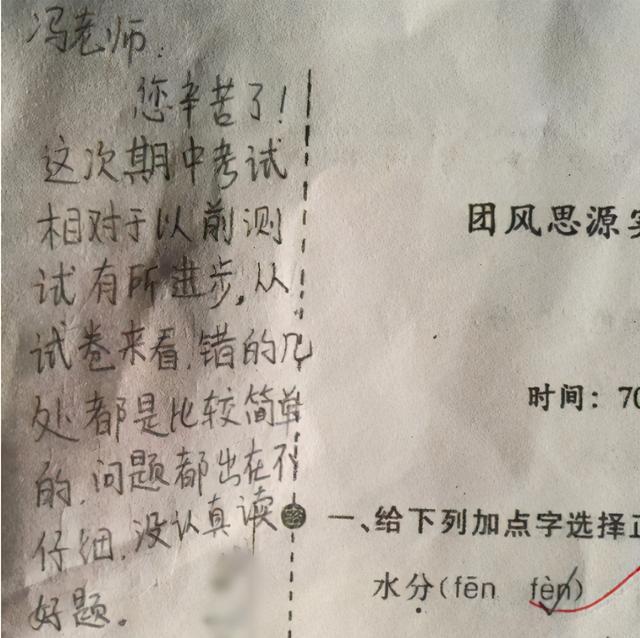 冯老师：
您辛苦了！
这次期中考试
相对于以前测
试有所进步，从
试卷来看，错的几
处都是比较简单
的，问题都出在不
仔细，没认真读
好题。
团风思源实
时间：70
一、给下列加点字选择正
水分(fēn fèn)